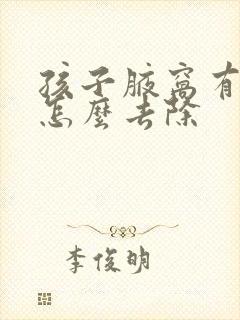 孩子腋窩有
怎麼去除
李俊明